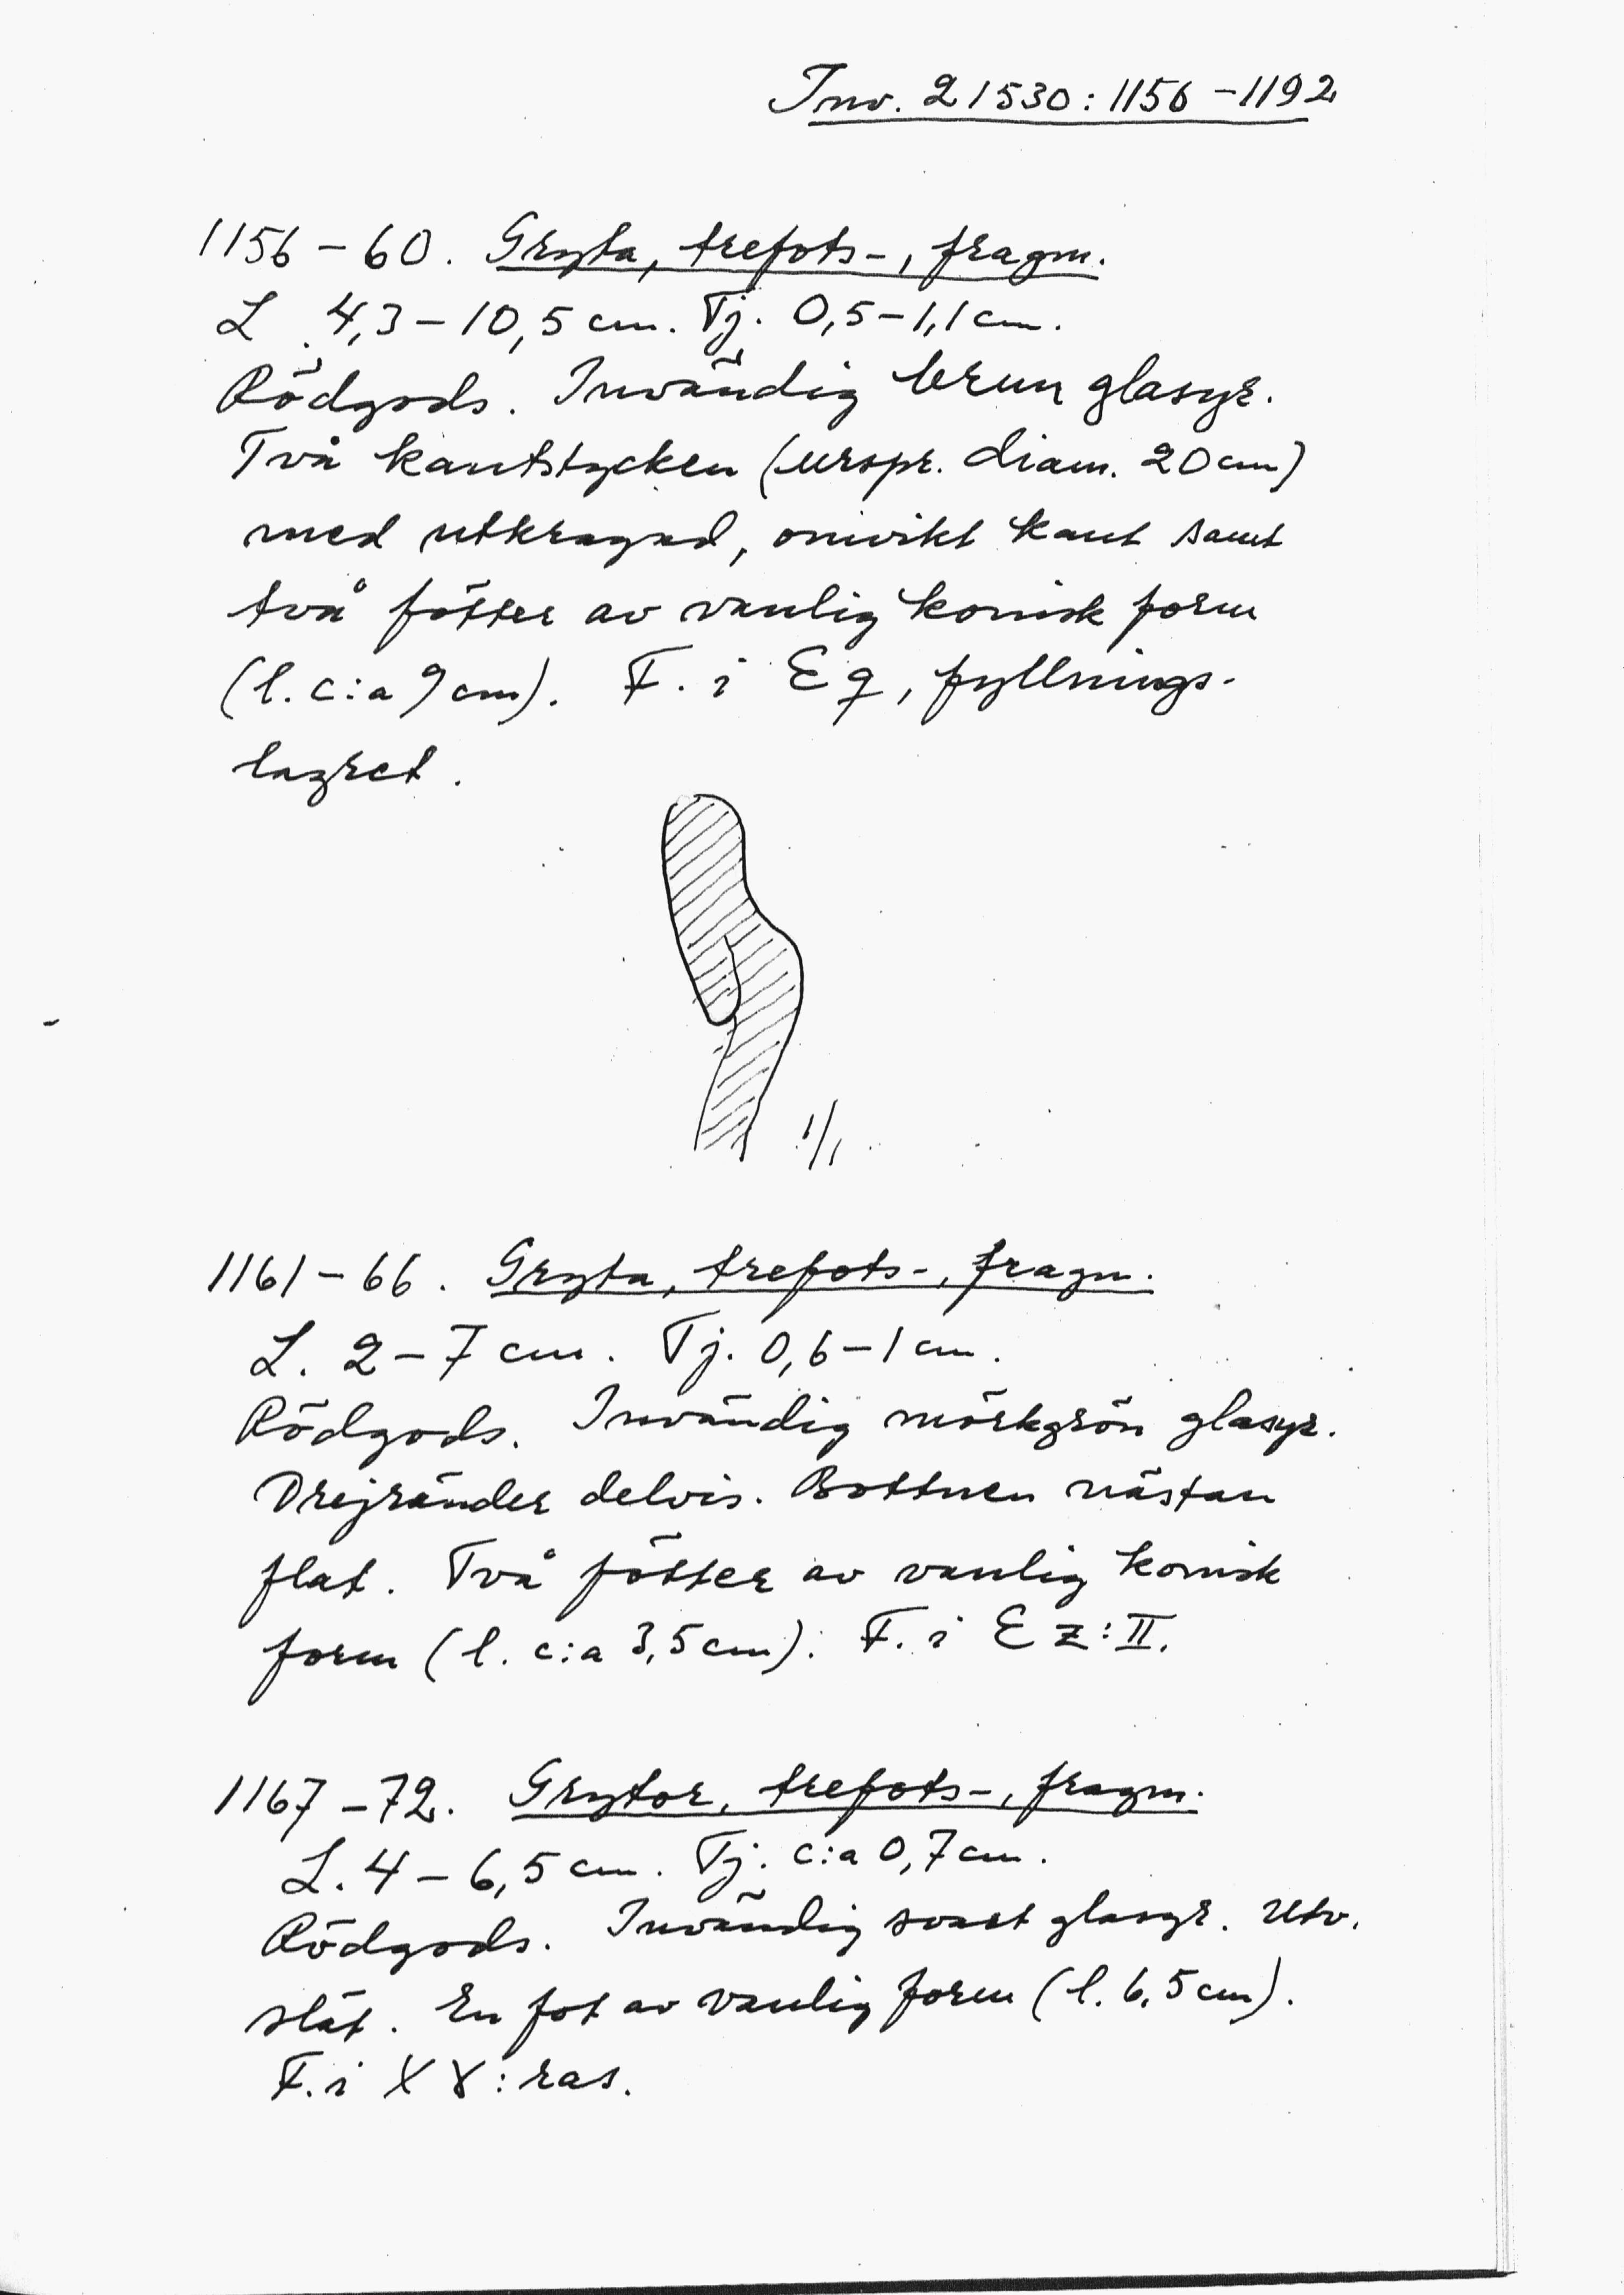 Inv. 21530:1156-1192
1156-60. Gryta, trefots-, fragm.
L. 4,3-10,5 cm. Tj. 0,5-1,1 cm.
Rödgods. Invändig brun glasyr.
Två kantstycken (urspr. diam. 20 cm)
med utkragad, omvikt kant samt
två fötter av vanlig konisk form
(l. c:a 9 cm). F. i Eq, fyllnings-
lagret.
1/1
1161-66. Gryta, trefots-, fragm.
L. 2-7 cm. Tj. 0,6-1 cm.
Rödgods. Invändig mörkgrön glasyr.
Drejränder delvis. Bottnen nästan
flat. Två fötter av vanlig konisk
form (l. c:a 3,5 cm). F. i Ez:II.
1167-72. Grytor, trefots-, fragm.
L. 4-6,5 cm. Tj. c:a 0,7 cm.
Rödgods. Invändig svart glasyr. Utv.
slät. En fot av vanlig form (l. 6,5 cm).
F. i :ras.